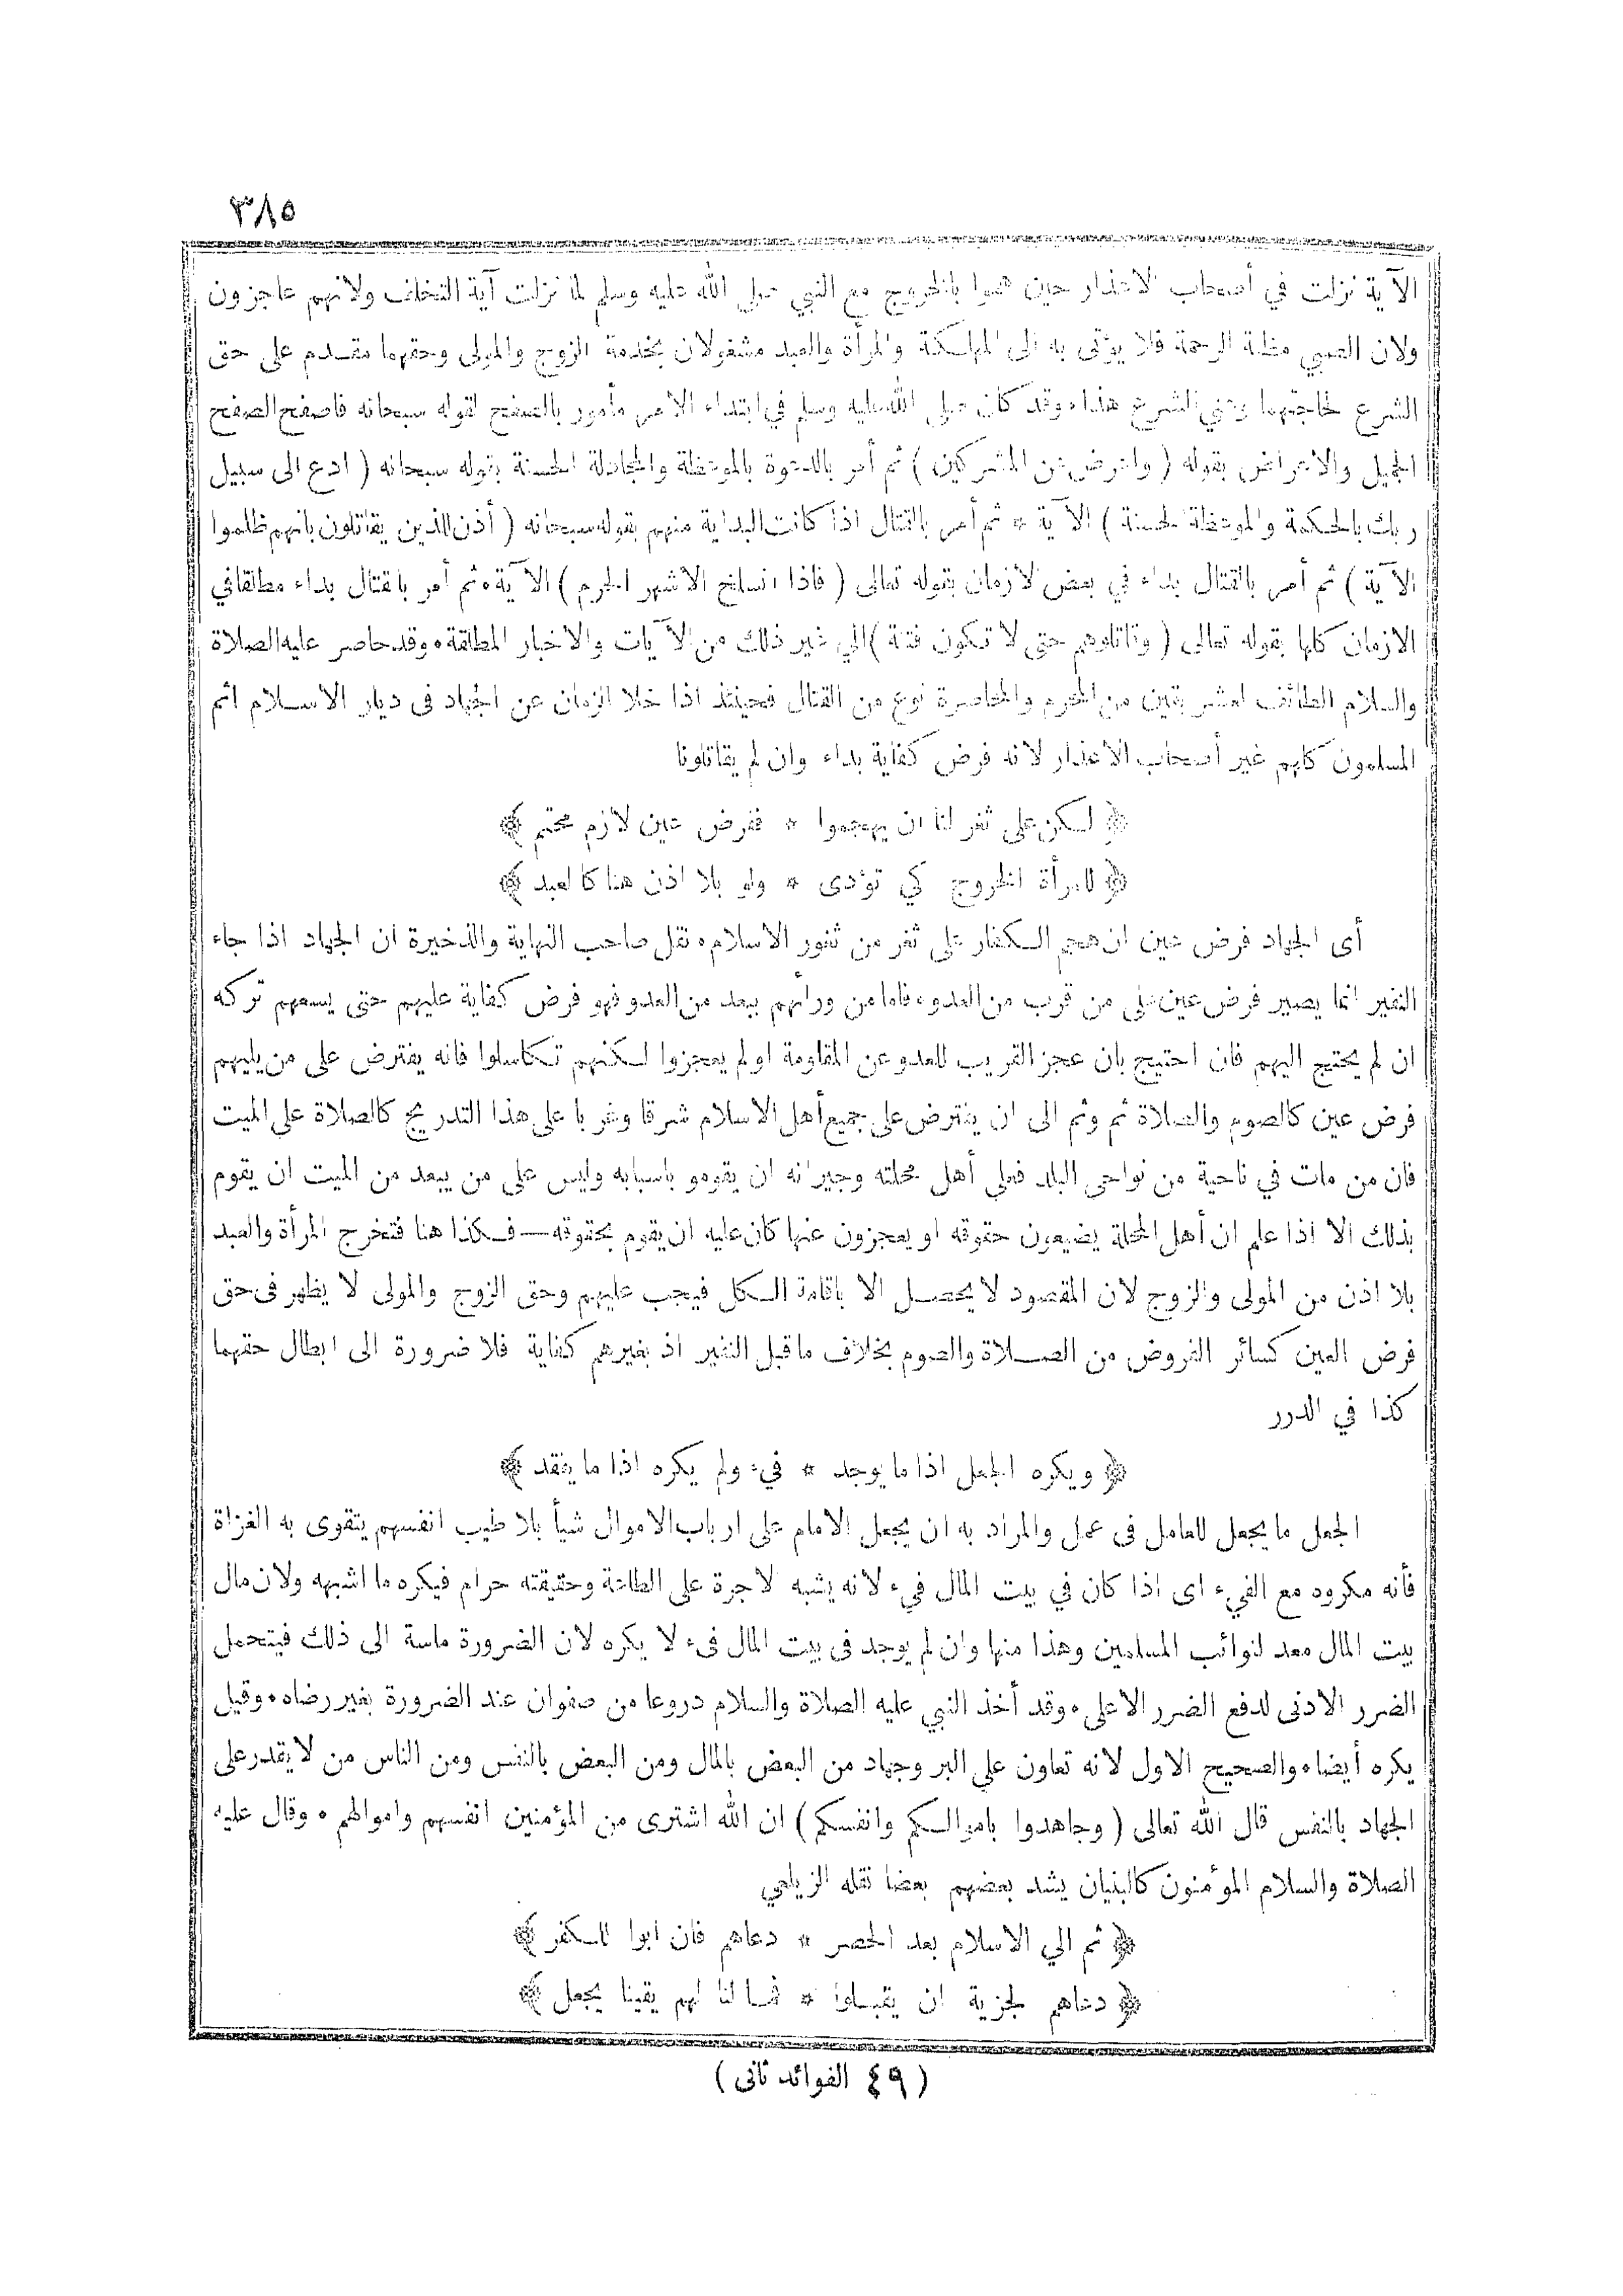 ٣٨٥
الآية نزلت في أصحاب الاعذار حين هموا بالخروج مع النبي صلى الله عليه وسلم لما نزلت آية التخلف ولانهم عاجزون
ولان الصبي مظنة الرحمة فلا يؤتى به الى المهلكة والمرأة والعبد مشغولان بخدمة الزوج والمولى وحقهما مقدم على حق
الشرع لحاجتهما وغني الشرع هذا ٠ وقد كان صلى الله عليه وسلم في ابتداء الامر مأمور بالصفح لقوله سبحانه فاصفح الصفح
الجميل والاعراض بقوله ( واعرض عن المشركين ) ثم أمر بالدعوة بالموعظة والمجادلة الحسنة بقوله سبحانه ( ادع الى سبيل
ربك بالحكمة والموعظة الحسنة ) الآية * ثم أمر بالقتال اذا كانت البداية منهم بقوله سبحانه ( أذن للذين يقاتلون بانهم ظلموا
الآية ) ثم أمر بالقتال بداء في بعض الازمان بقوله تعالى ( فاذا انسلخ الاشهر الحرم ) الآية ٠ ثم أمر بالقتال بداء مطلقا في
الازمان كلها بقوله تعالى ( وقاتلوهم حتى لا تكون فتنة ) الي غير ذلك من الآيات والاخبار المطلقة ٠ وقد حاصر عليه الصلاة
والسلام الطائف لعشر بقين من المحرم والمحاصرة نوع من القتال فحينئذ اذا خلا الزمان عن الجهاد فى ديار الاسلام اثم
المسلمون كلهم غير أصحاب الاعذار لانه فرض كفاية بداء وان لم يقاتلونا
﴿ لكن على ثغر لنا ان يهجموا * ففرض عين لازم محتم ﴾
﴿ للمرأة الخروج كي تؤدى * ولو بلا اذن هنا كالعبد ﴾
أى الجهاد فرض عين ان هجم الكفار على ثغر من ثغور الاسلام ٠ نقل صاحب النهاية والذخيرة ان الجهاد اذا جاء
النفير انما يصير فرض عين على من قرب من العدو ٠ فاما من ورأهم ببعد من العدو فهو فرض كفاية عليهم حتى يسعهم تركه
ان لم يحتج اليهم فان احتيج بان عجز القريب للعدو عن المقاومة او لم يعجزوا لكنهم تكاسلوا فانه يفترض على من يليهم
فرض عين كالصوم والصلاة ثم وثم الى ان يفترض على جميع أهل الاسلام شرقا وغربا على هذا التدريج كالصلاة على الميت
فان من مات في ناحية من نواحى البلد فعلي أهل محلته وجيرانه ان يقومو باسبابه وليس على من يبعد من الميت ان يقوم
بذلك الا اذا علم ان أهل المحلة يضيعون حقوقه او يعجزون عنها كان عليه ان يقوم بحقوقه — فكذا هنا فتخرج المرأة والعبد
بلا اذن من المولى والزوج لان المقصود لا يحصل الا باقامة الكل فيجب عليهم وحق الزوج والمولى لا يظهر فى حق
فرض العين كسائر الفروض من الصلاة والصوم بخلاف ما قبل النفير اذ بغيرهم كفاية فلا ضرورة الى ابطال حقهما
كذا في الدرر
﴿ ويكره الجعل اذا ما يوجد * فيء ولم يكره اذا ما يفقد ﴾
الجعل ما يجعل للعامل فى عمل والمراد به ان يجعل الامام على ارباب الاموال شيأ بلا طيب انفسهم يتقوى به الغزاة
فأنه مكروه مع الفيء اى اذا كان في بيت المال فيء لانه يشبه الاجرة على الطاعة وحقيقته حرام فيكره ما اشبهه ولان مال
بيت المال معد لنوائب المسلمين وهذا منها وان لم يوجد فى بيت المال فىء لا يكره لان الضرورة ماسة الى ذلك فيتحمل
الضرر الادنى لدفع الضرر الاعلى ٠ وقد أخذ النبي عليه الصلاة والسلام دروعا من صفوان عند الضرورة بغير رضاه ٠ وقيل
يكره أيضا ٠ والصحيح الاول لانه تعاون علي البر وجهاد من البعض بالمال ومن البعض بالنفس ومن الناس من لا يقدر على
الجهاد بالنفس قال الله تعالى ( وجاهدوا باموالكم وانفسكم ) ان الله اشترى من المؤمنين انفسهم واموالهم ٠ وقال عليه
الصلاة والسلام المؤمنون كالبنيان يشد بعضهم بعضا نقله الزيلعي
﴿ ثم الي الاسلام بعد الحصر * دعاهم فان ابوا للكفر ﴾
﴿ دعاهم لجزية ان يقبلوا * فما لنا لهم يقينا يجعل ﴾
( ٤٩ الفوائد ثانى )